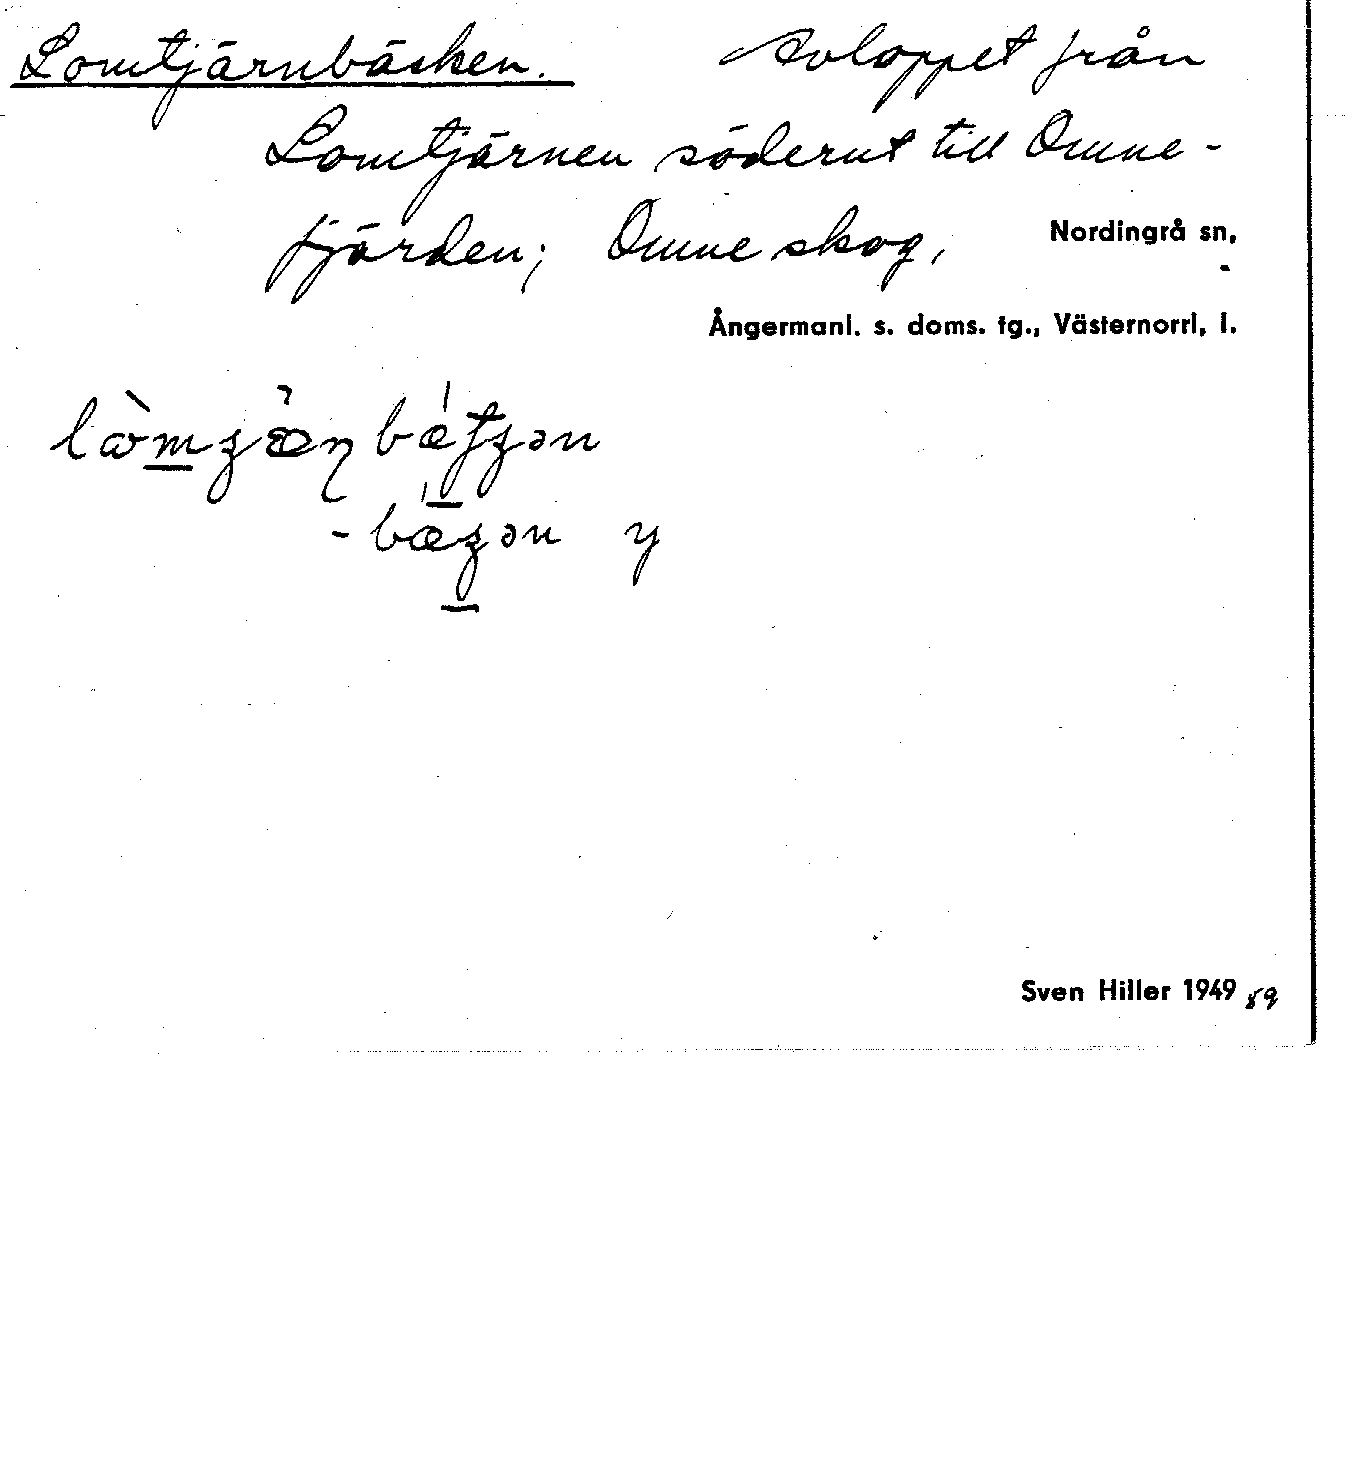 Lomtjärnbäcken. Avloppet från
Lomtjärnen söderut till Omne-
fjärden; Omne skog,
Nordingrå sn,
Ångermanl. s. doms. tg., Västernorrl, l.
-bæʒən y
Sven Hiller 1949 59